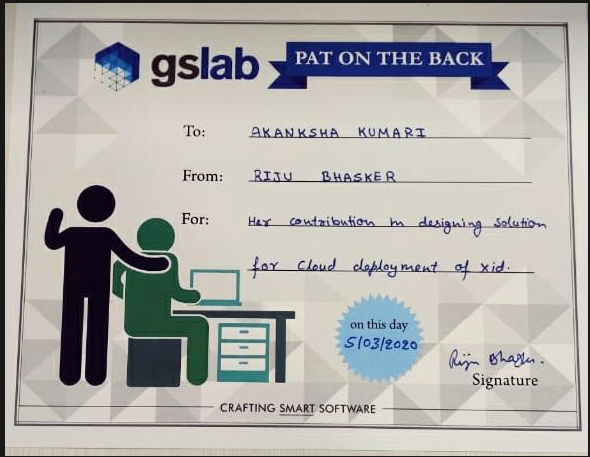 gslab
PAT ON THE BACK
To: AKANKSHA KUMARI
From: RIJU BHASKER
For: Her contribution in designing solution
for Cloud deployment of xid.
on this day
5/03/2020
Riju Bhasker.
Signature
CRAFTING SMART SOFTWARE